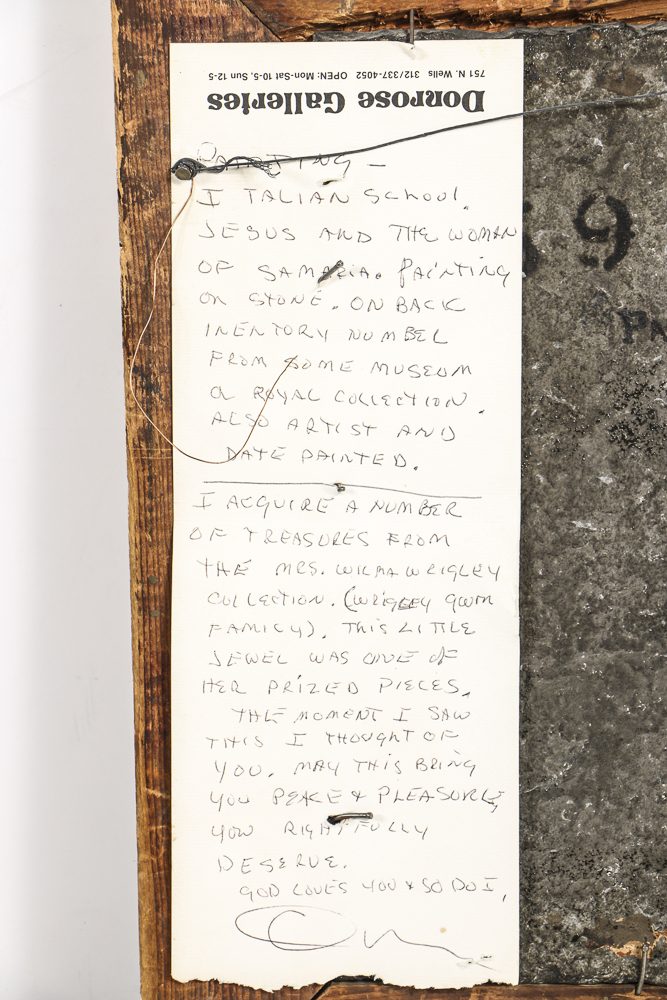 Donrose Galleries
751 N. Wells 312/337-4052 OPEN: Mon-Sat 10-5, Sun 12-5
PAINTING —
ITALIAN School.
JESUS AND THE WOMAN
OF SAMARIA. PAINTING
ON STONE. ON BACK
INENTORY NUMBER
FROM SOME MUSEUM
OR ROYAL COLLECTION.
ALSO ARTIST AND
DATE PAINTED.
I ACQUIRE A NUMBER
OF TREASURES FROM
THE MRS. WILMA WRIGLEY
COLLECTION. (WRIGLEY GUM
FAMILY). THIS LITTLE
JEWEL WAS ONE OF
HER PRIZED PIECES.
THE MOMENT I SAW
THIS I THOUGHT OF
YOU. MAY THIS BRING
YOU PEACE & PLEASURE,
YOU RIGHTFULLY
DESERVE.
GOD LOVES YOU & SO DO I,
9
PA